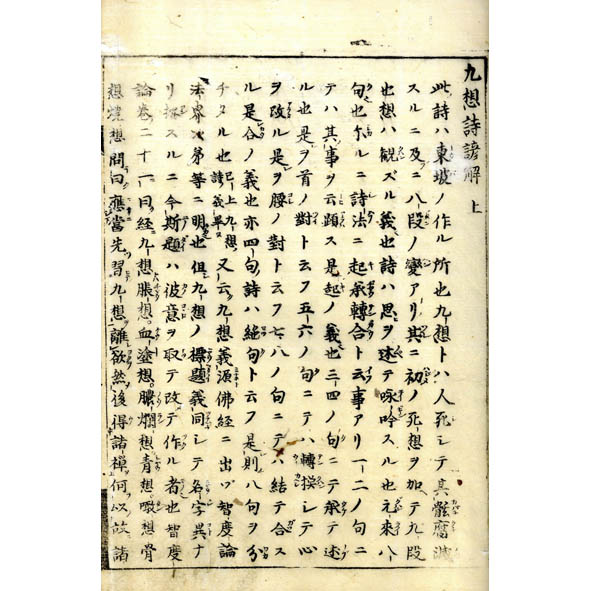 九想詩諺解上
此詩ハ東坡ノ作ル所也九想トハ人死シテ其骸腐滅
スルニ及ニ八段ノ變アリ其ニ初ノ死想ヲ加テ九段
也想ハ観ズル義也詩ハ思ヲ述テ咏吟スル也元来八
句也尓ルニ詩法ニ起承轉合ト云事アリ一二ノ句ニ
テハ其事ヲ云顕ス是起ノ義也三四ノ句ニテ承テ述
ル也是ヲ首ノ對ト云フ五六ノ句ニテハ轉揬シテ心
ヲ改ル是ヲ腰ノ對ト云フ七八ノ句ニテハ結テ合ス
ル是合ノ義也亦四句ノ詩ハ絶句ト云フ是則八句ヲ分
チタル也已上九想詩義畢ス又云九想義源佛經ニ出ヅ智度論
法界次第等ニ明也但九想ノ標題義同シテ名字異ナ
リ採スルニ今斯題ハ彼意ヲ取テ改テ作ル者也智度
論巻二十一曰經九想脹想血塗想膿爛想青想噉想骨
想燒想問曰應當先習九想離欲然後得諸禪何以故諸